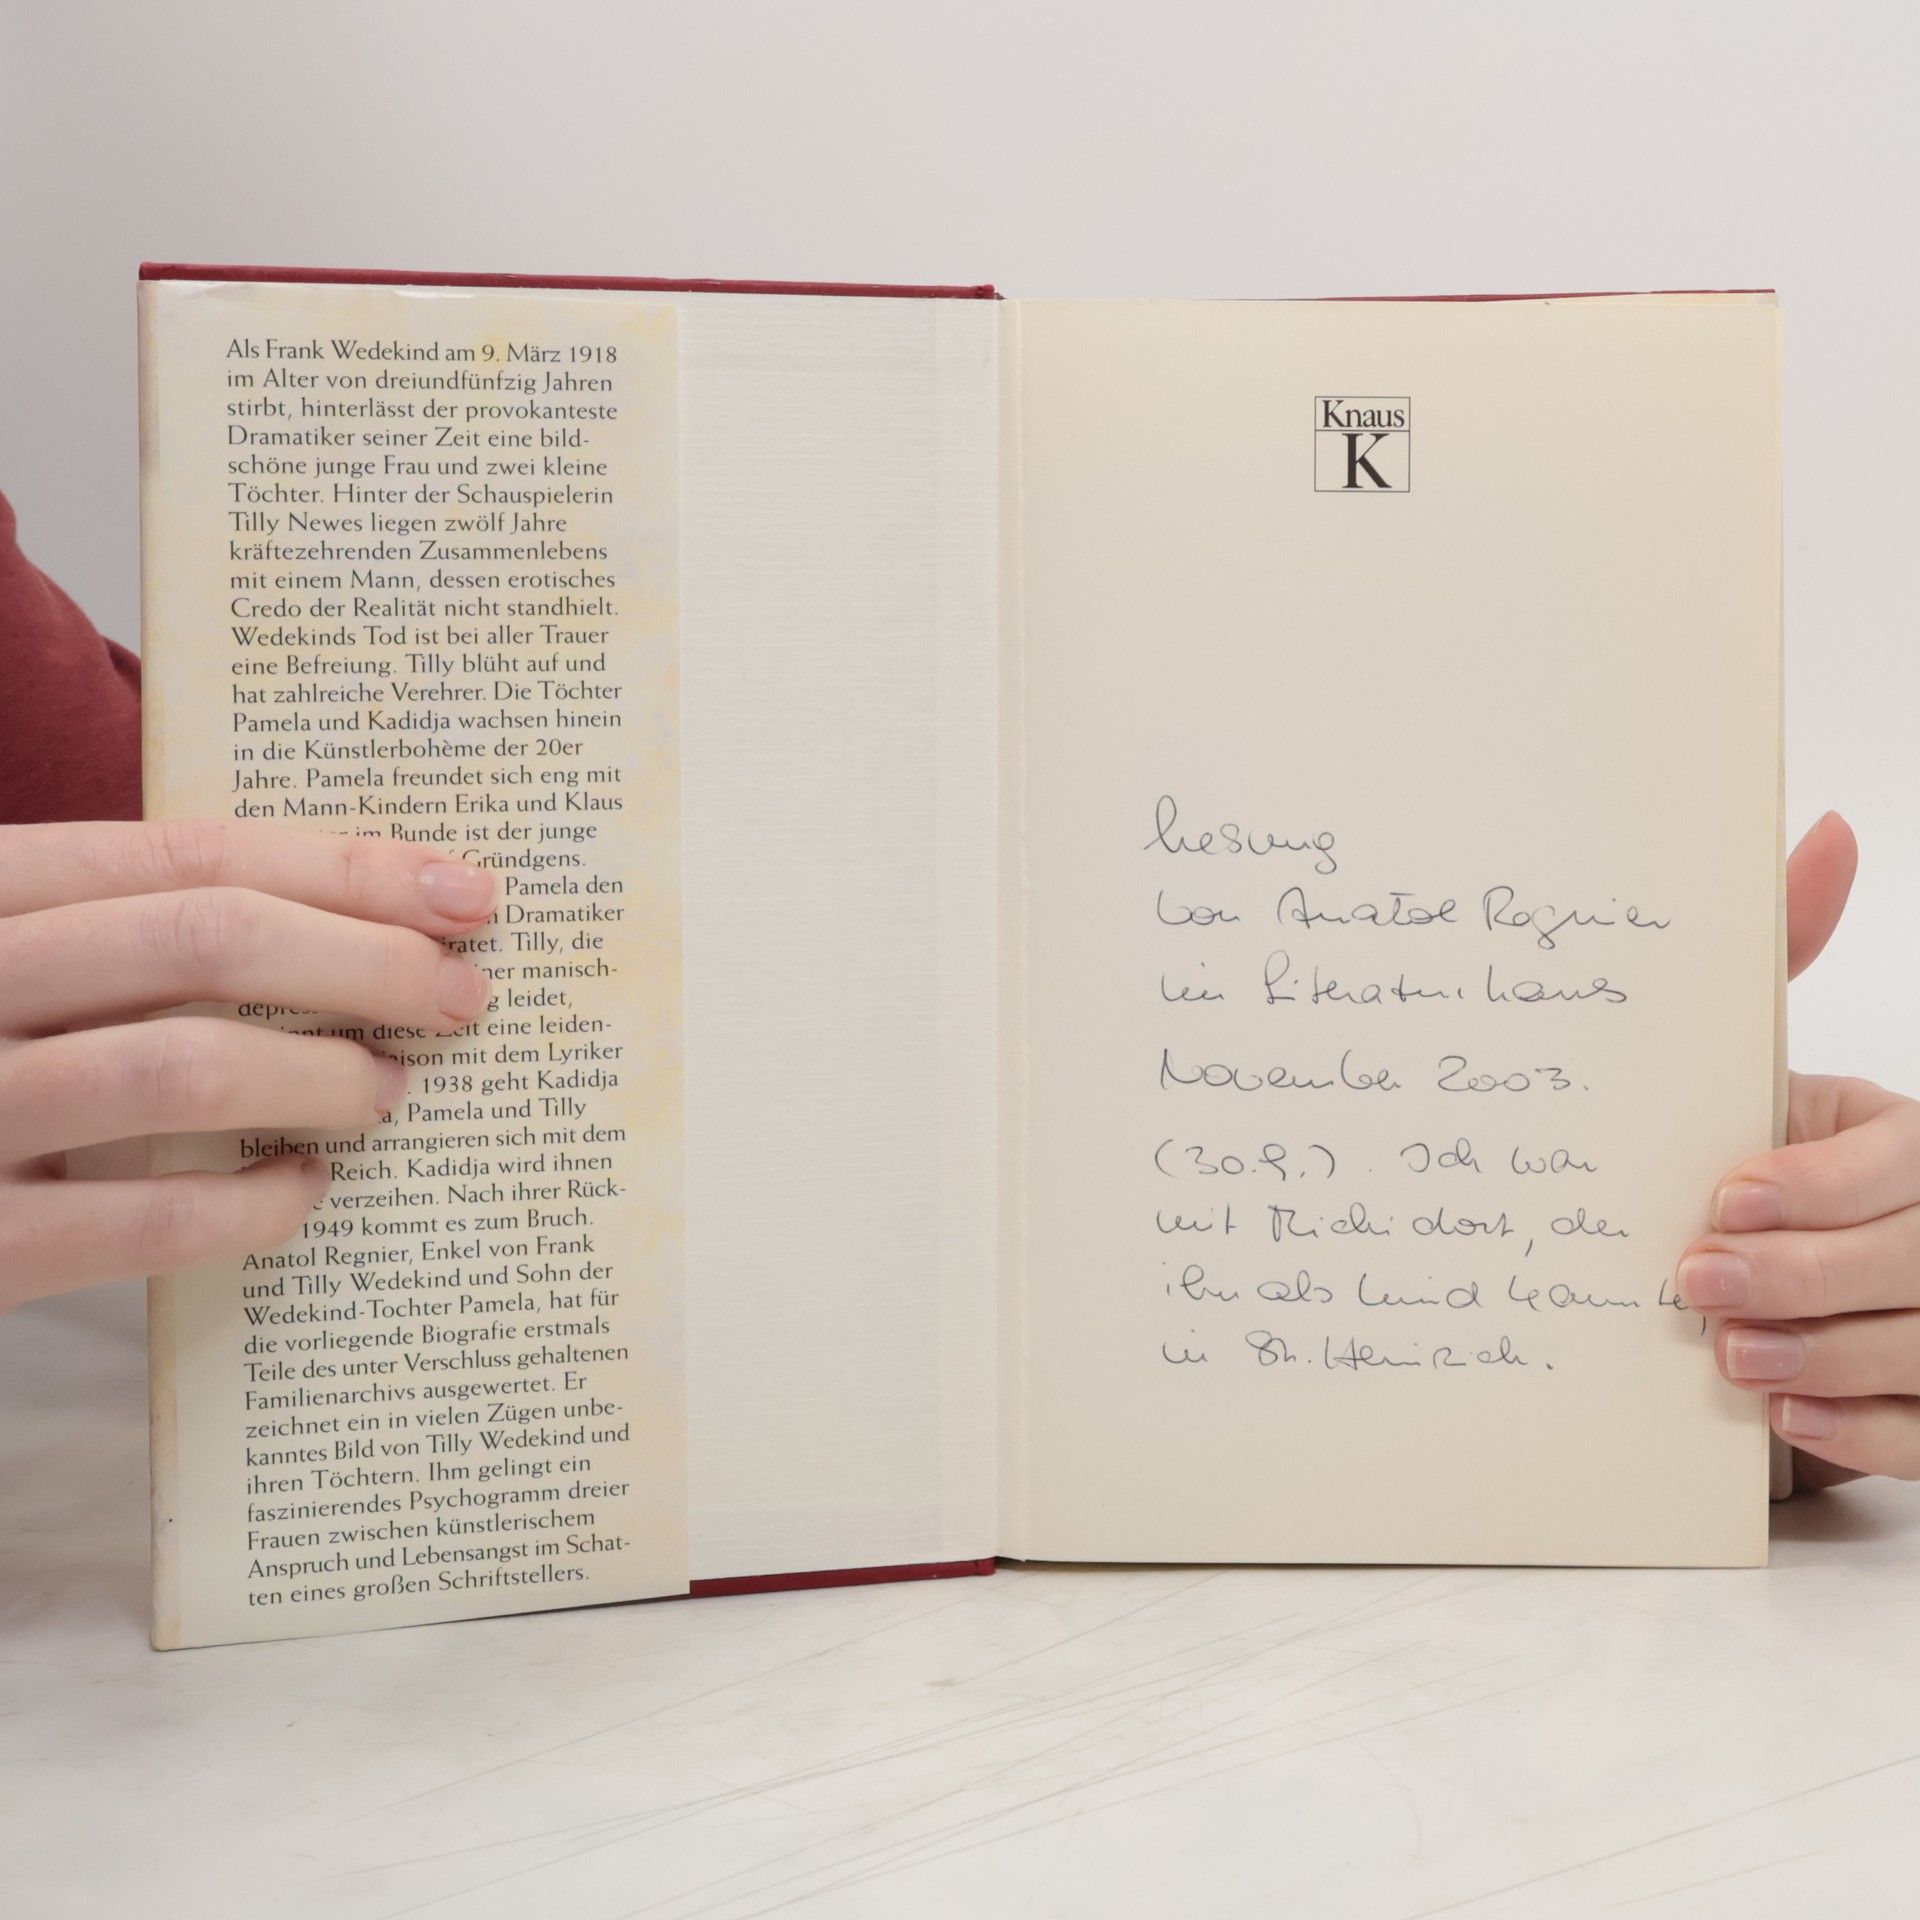 Als Frank Wedekind am 9. März 1918
im Alter von dreiundfünfzig Jahren
stirbt, hinterlässt der provokanteste
Dramatiker seiner Zeit eine bild-
schöne junge Frau und zwei kleine
Töchter. Hinter der Schauspielerin
Tilly Newes liegen zwölf Jahre
kräftezehrenden Zusammenlebens
mit einem Mann, dessen erotisches
Credo der Realität nicht standhielt.
Wedekinds Tod ist bei aller Trauer
eine Befreiung. Tilly blüht auf und
hat zahlreiche Verehrer. Die Töchter
Pamela und Kadidja wachsen hinein
in die Künstlerbohème der 20er
Jahre. Pamela freundet sich eng mit
den Mann-Kindern Erika und Klaus
im Bunde ist der junge
Gründgens.
Pamela den
Dramatiker
Tilly, die
manisch-
leidet,
um diese Zeit eine leiden-
mit dem Lyriker
1938 geht Kadidja
Pamela und Tilly
bleiben und arrangieren sich mit dem
Reich. Kadidja wird ihnen
verzeihen. Nach ihrer Rück-
1949 kommt es zum Bruch.
Anatol Regnier, Enkel von Frank
und Tilly Wedekind und Sohn der
Wedekind-Tochter Pamela, hat für
die vorliegende Biografie erstmals
Teile des unter Verschluss gehaltenen
Familienarchivs ausgewertet. Er
zeichnet ein in vielen Zügen unbe-
kanntes Bild von Tilly Wedekind und
ihren Töchtern. Ihm gelingt ein
faszinierendes Psychogramm dreier
Frauen zwischen künstlerischem
Anspruch und Lebensangst im Schat-
ten eines großen Schriftstellers.
Knaus
K
Lesung
von Anatol Regnier
im Literaturhaus
November 2003.
(30.9.). Ich war
mit Michi dort, der
ihn als Kind kannte,
in St. Heinrich.